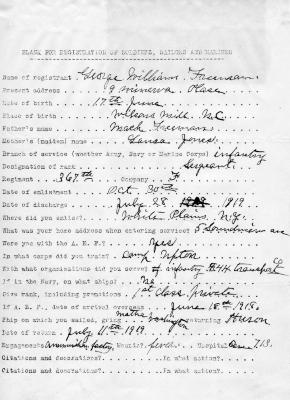 BLANK FOR REGISTRATION OF SOLDIERS, SAILORS AND MARINES
Name of registrant George William Freeman
Present address 89 Minerva Place
Date of birth 17th June
Place of birth Wilsons Mill N.C.
Father's name Mack Freeman
Mother's (maiden) name Jones
Branch of service (whether Army, Navy or Marine Corps) infantry
Designation of rank Sergeant
Regiment 367th Company F
Date of enlistment Oct. 30th
Date of discharge July 28 1919
Where did you enlist? White Plains, N.Y.
What was your home address when entering service? 5
Were you with the A. E. F.? yes
In what camps did you train? Camp Upton
With what organizations did you serve? infantry
If in the Navy, on what ships? No
Give rank, including promotions 1st Class Private
If A. E. F., date of arrival overseas June 18th 1918
Ship on which you mailed, going Martha Washington returning
Date of return July 11th 1919
Engagements Wounds? Hospital
Citations and decorations? In what action?
Citations and decorations? In what action?